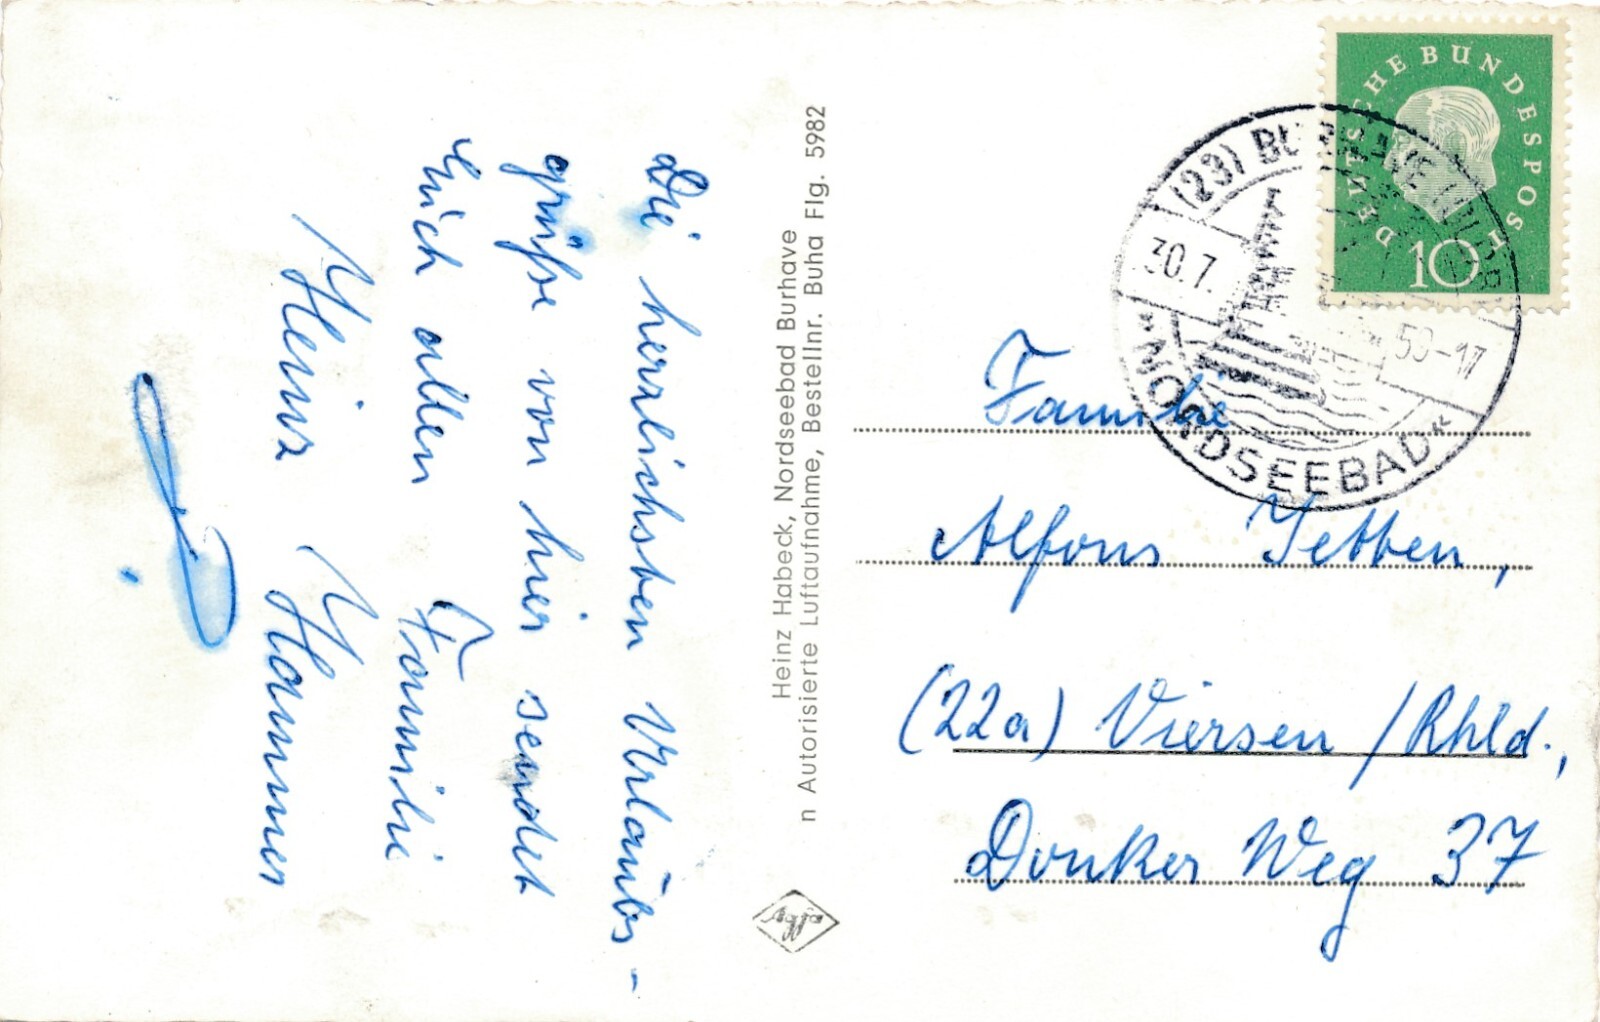 Die herrlichsten Urlaubs-
grüße von hier sendet
Euch allen Familie
Heinz Hammer
Heinz Habeck, Nordseebad Burhave
n Autorisierte Luftaufnahme, Bestellnr. Buha Flg. 5982
DEUTSCHE BUNDESPOST
10
(23) BURHAVE (OLDB)
30.7. 59-17
"NORDSEEBAD"
Familie
Alfons Jetten,
(22a) Viersen / Rhld.,
Donker Weg 37